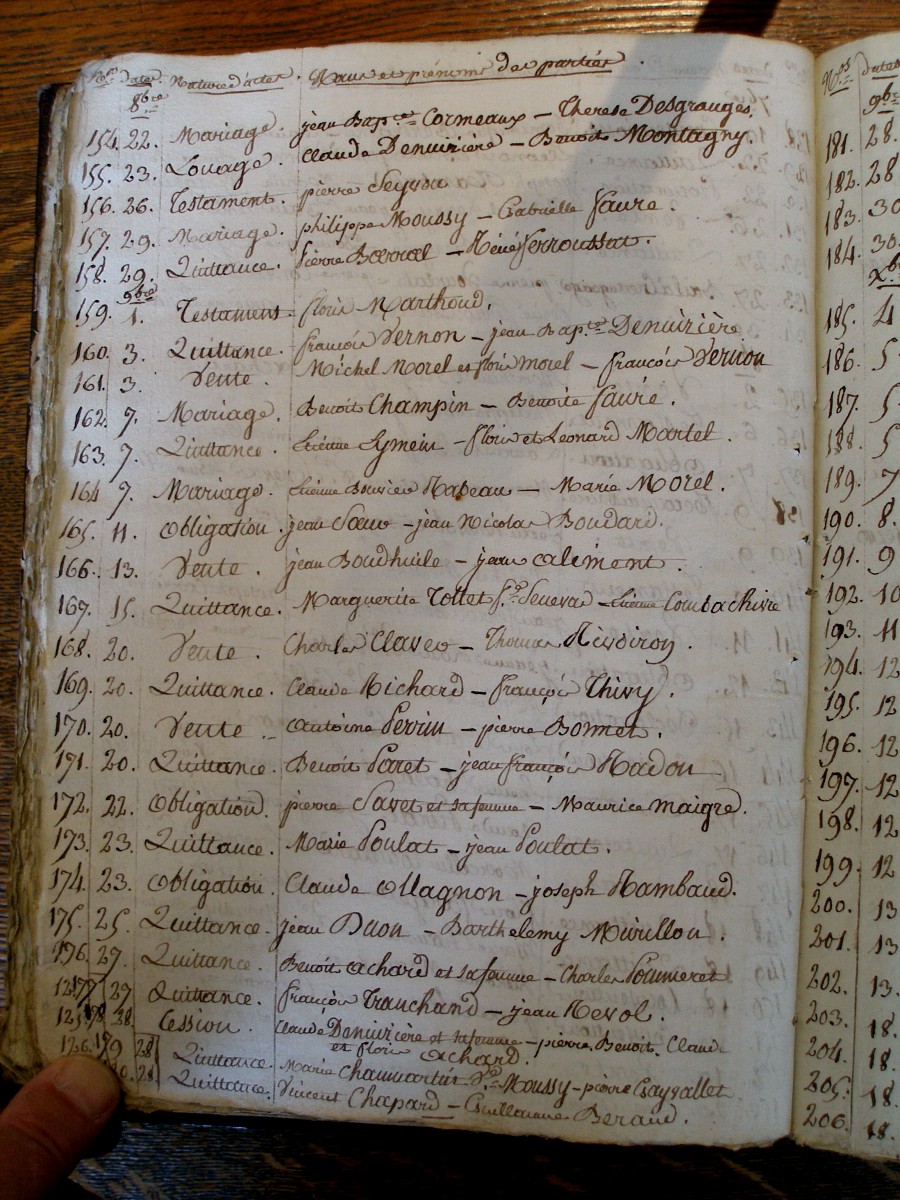 Nos. Dates. Nature d'actes. Noms et prénoms des parties
8bre
154. 22. Mariage. jean Bapte Cormeaux - Therese Desgranges.
155. 23. Louage. Claude Denuizière - Benoit Montagny.
156. 26. Testament. pierre Seyvou
157. 29. Mariage. philippe Moussy - Gabrielle faure.
158. 29. Quittance. pierre - Réné ferroussat.
9bre
159. 1. Testament floris Marthoud.
160. 3. Quittance. françois Vernon - jean Bapte Denuizière
161. 3. Vente. Michel Morel et floris Morel - françois Vernon
162. 7. Mariage. Benoit Champin - Benoite faure.
163. 7. Quittance. Etienne Eymein - floris et Léonard Martel.
164 7. Mariage. Etienne Nadeau - Marie Morel.
165. 11. Obligation. jean - jean Nicolas Boudard.
166. 13. Vente. jean Boudhuile - jean aliment.
167. 15. Quittance. Marguerite Tottet - Etienne Combachivre
168. 20. Vente. Charles Claveo - Thomas Rivoiron.
169. 20. Quittance. Claude Richard - françois Thivy.
170. 20. Vente. antoine Perrin - pierre Bonnet.
171. 20. Quittance. Benoit Peret - jean françois Nadon
172. 22. Obligation. pierre Savet et sa femme - Maurice maigre.
173. 23. Quittance. Marie Poulat - jean Poulat.
174. 23. Obligation. Claude Ollagnon - joseph Rambaud.
175. 25. Quittance. jean Duon - Barthelemy Mirullou.
176. 27. Quittance. Benoit achard et sa femme - Charles Pommerat
177 27 Quittance. françois Tranchand - jean Revol.
178 28. Cession. Claude Denuizière et sa femme - pierre, Benoit, Claude
et floris achard.
179 28 Quittance. Marie Chaumartin Ve Moussy - pierre Gaygallet
28 Quittance. Vincent Chapard - Guillaume Beraud.
Nos Dates
9bre
181. 28.
182. 28
183. 30
184. 30.
Xbre
185. 4
186. 5
187. 5
188. 5
189. 7
190. 8.
191. 9
192. 10
193. 11
194. 12
195. 12
196. 12
197. 12
198. 12
199. 12
200. 13
201. 13
202. 13.
203. 18.
204. 18.
205. 18.
206. 18.